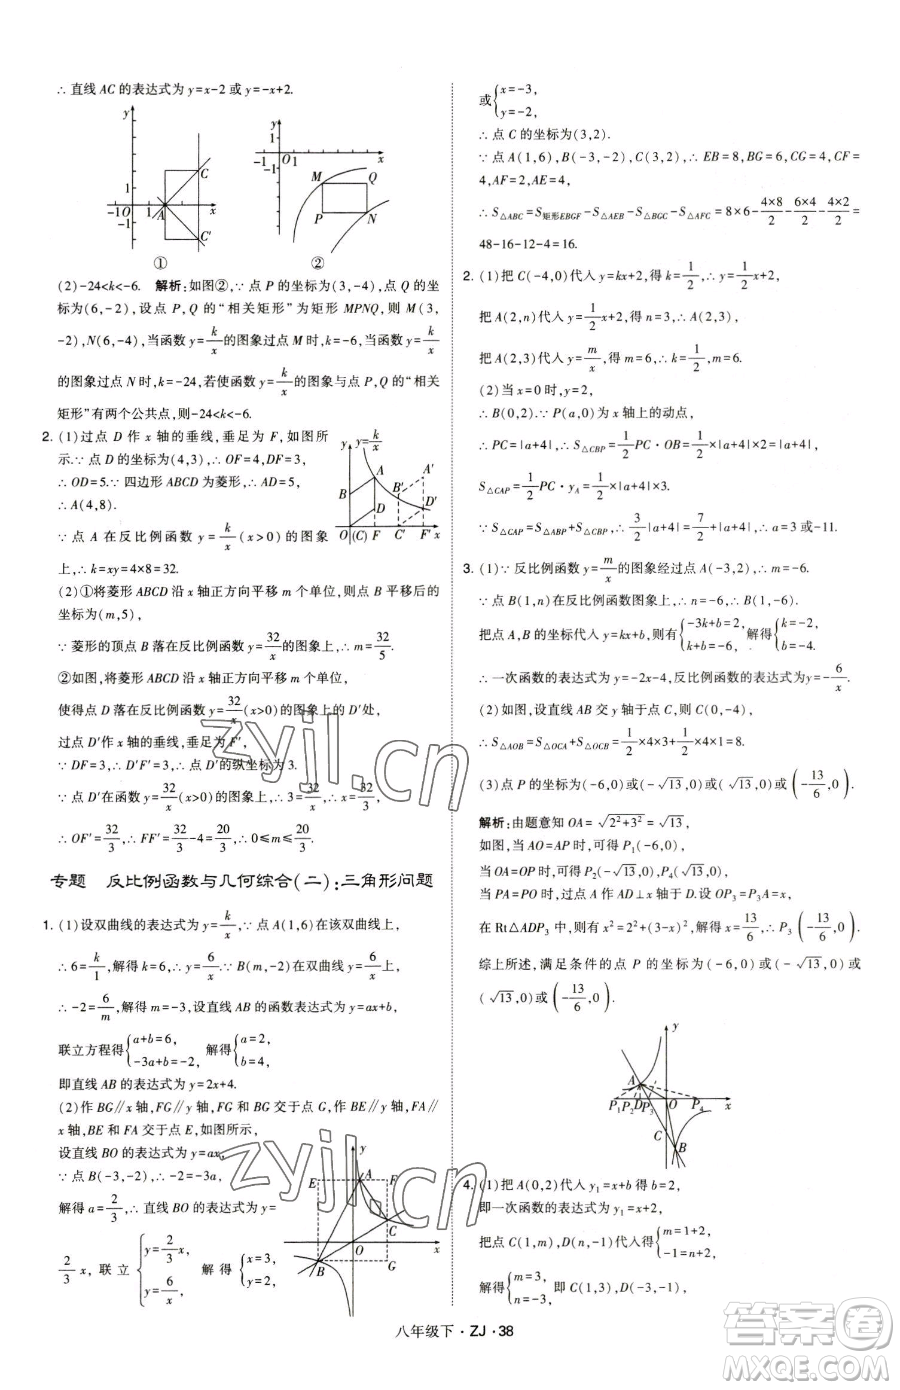 ∴直线 AC 的表达式为 y=x-2 或 y=-x+2.
y
1
-1 O 1 A x
-1
C
C'
①
y
1
-1 O 1 x
-1
M Q
P N
②
(2)-24<k<-6. 解析:如图②,∵点 P 的坐标为(3,-4),点 Q 的
坐标为(6,-2),设点 P,Q 的“相关矩形”为矩形 MPNQ,则 M(3,
-2),N(6,-4),当函数 y=k/x 的图象过点 M 时,k=-6,当函数 y=k/x
的图象过点 N 时,k=-24,若使函数 y=k/x 的图象与点 P,Q 的“相关
矩形”有两个公共点,则-24<k<-6.
2. (1)过点 D 作 x 轴的垂线,垂足为 F,如图所
示.∵点 D 的坐标为(4,3),∴OF=4,DF=3,
∴OD=5.∵四边形 ABCD 为菱形,∴AD=5,
∴A(4,8).
∵点 A 在反比例函数 y=k/x (x>0)的图象
上,∴k=xy=4×8=32.
y y=k/x
A A'
B B'
D D'
O (C) F C' F' x
(2)①将菱形 ABCD 沿 x 轴正方向平移 m 个单位,则平移后 B 的
坐标为(m,5),
∵菱形的顶点 B 落在反比例函数 y=32/x 的图象上,∴m=32/5.
②如图,将菱形 ABCD 沿 x 轴正方向平移 m 个单位,
使得点 D 落在反比例函数 y=32/x (x>0)的图象上的 D'处,
过点 D'作 x 轴的垂线,垂足为 F',
∵DF=3,∴D'F'=3.∴D'的纵坐标为 3.
∵点 D'在函数 y=32/x (x>0)的图象上,∴3=32/x,∴x=32/3,
∴OF'=32/3,∴FF'=32/3-4=20/3,∴0≤m≤20/3.
专题 反比例函数与几何综合(二):三角形问题
1. (1)设双曲线的表达式为 y=k/x,∵点 A(1,6)在该双曲线上,
∴6=k/1,解得 k=6,∴y=6/x.∵B(m,-2)在双曲线 y=6/x 上,
∴-2=6/m,解得 m=-3,设直线 AB 的函数表达式为 y=ax+b,
联立方程得{a+b=6, -3a+b=-2, 解得{a=2, b=4.
即直线 AB 的表达式为 y=2x+4.
(2)作 BG∥x 轴,FG∥y 轴,FG 和 BG 交于点 G,作 BE∥y 轴,FA∥
x 轴,BE 和 FA 交于点 E,如图所示,
设直线 BO 的表达式为 y=ax,
∵点 B(-3,-2),∴-2=-3a,
解得 a=2/3,∴直线 BO 的表达式为 y=
2/3 x, 联立{y=2/3 x, y=6/x, 解得{x=3, y=2,
y
E A F
C
O x
B G
或{x=-3, y=-2,
∴点 C 的坐标为(3,2).
∵点 A(1,6),B(-3,-2),C(3,2),∴EB=8,BG=6,CG=4,CF=
4,AF=2,AE=4,
∴S△ABC=S矩形EBGF-S△AEB-S△BGC-S△AFC=8×6-4×8/2-6×4/2-4×2/2=
48-16-12-4=16.
2. (1)把 C(-4,0)代入 y=kx+2,得 k=1/2,∴y=1/2x+2,
把 A(2,n)代入 y=1/2x+2,得 n=3,∴A(2,3),
把 A(2,3)代入 y=m/x,得 m=6,∴k=1/2,m=6.
(2)当 x=0 时,y=2,
∴B(0,2).∵P(a,0)为 x 轴上的动点,
∴PC=|a+4|,∴S△CBP=1/2PC·OB=1/2×|a+4|×2=|a+4|,
S△CAP=1/2PC·yA=1/2×|a+4|×3.
∵S△CAP=S△ABP+S△CBP,∴3/2|a+4|=7/2+|a+4|,∴a=3 或-11.
3. (1)∵反比例函数 y=m/x 的图象经过点 A(-3,2),∴m=-6.
∵点 B(1,n)在反比例函数图象上,∴n=-6,∴B(1,-6),
把点 A,B 的坐标代入 y=kx+b,则有{-3k+b=2, k+b=-6, 解得{k=-2, b=-4,
∴一次函数的表达式为 y=-2x-4,反比例函数的表达式为 y=-6/x.
(2)如图,设直线 AB 交 y 轴于点 C,则 C(0,-4),
∴S△AOB=S△OCA+S△OCB=1/2×4×3+1/2×4×1=8.
(3)点 P 的坐标为(-6,0)或(-√13,0)或(√13,0)或(-13/6,0).
解析:由题意知 OA=√2²+3²=√13,
如图,当 AO=AP 时,可得 P₁(-6,0),
当 OA=OP 时,可得 P₂(-√13,0),P₄(√13,0),
当 PA=PO 时,过点 A 作 AD⊥x 轴于 D.设 OP₃=AP₃=x,
在 Rt△ADP₃ 中,则有 x²=2²+(3-x)²,解得 x=13/6,∴P₃(-13/6,0).
综上所述,满足条件的点 P 的坐标为(-6,0)或(-√13,0)或
(√13,0)或(-13/6,0).
y
A
P₁ P₂ D P₃ O P₄ x
C
B
4. (1)把 A(0,2)代入 y₁=x+b 得 b=2,
即一次函数的表达式为 y₁=x+2,
把点 C(1,m),D(n,-1)代入得{m=1+2, -1=n+2,
解得{m=3, n=-3, 即 C(1,3),D(-3,-1),
八年级下·ZJ·38
zyjl.cn
zyjl.cn
答案圈
MXQE.COM